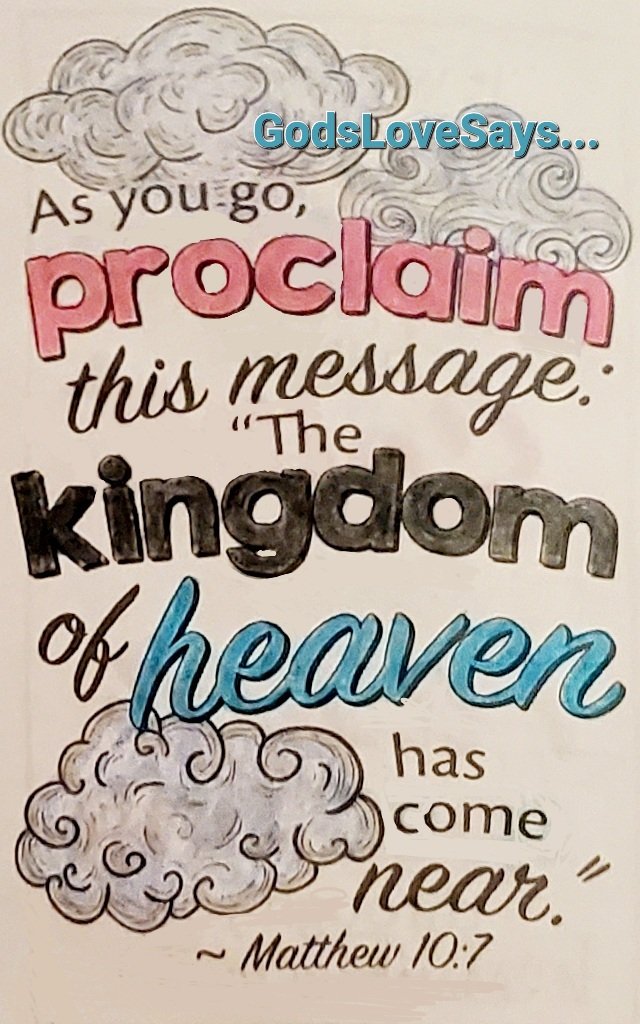 GodsLoveSays...
As you go,
proclaim
this message:
“The
kingdom
of heaven
has
come
near.”
~ Matthew 10:7